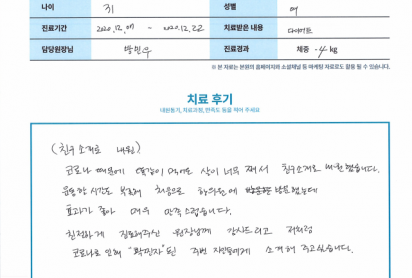 나이 31 성별 여
진료기간 2020.12.09 - 2020.12.22 치료받은 내용 다이어트
담당원장님 박민우 진료경과 체중 -4 kg
※ 본 자료는 본원의 홈페이지와 소셜채널 등 마케팅 자료로도 활용 될 수 있습니다.
치료 후기
내원동기, 치료과정, 만족도 등을 적어 주세요
(친구소개로 내원)
코로나 때문에 똑같이 먹어도 살이 너무 쪄서 친구소개로 내원했습니다.
운동할 시간도 부족해 처음으로 한의원에 방문했는데
효과가 좋아 매우 만족스럽습니다.
친절하게 진료해주신 원장님께 감사드리고 저처럼
코로나로 인해 "확찐자"된 주변 지인들에게 소개해주고싶습니다.